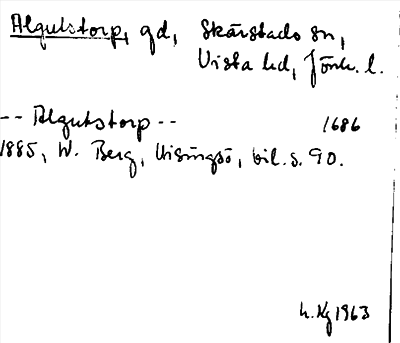 Algutstorp, gd, Skärstads sn,
Vista hd, Jönk. l.
-- Algutstorp -- 1686
1885, W. Berg, Visingsö, bil. s. 90.
h. Kg 1963